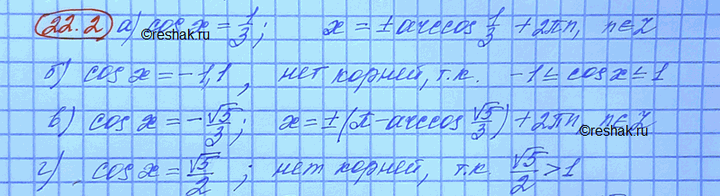 22.2 а) cos x = 1/3; x = ± arccos 1/3 + 2πn, n∈Z
©reshak.ru
б) cos x = -1,1, нет корней, т.к. -1 ≤ cos x ≤ 1
в) cos x = -√5/3; x = ±(π - arccos √5/3) + 2πn, n∈Z
©reshak.ru
г) cos x = √5/2; нет корней, т.к. √5/2 > 1